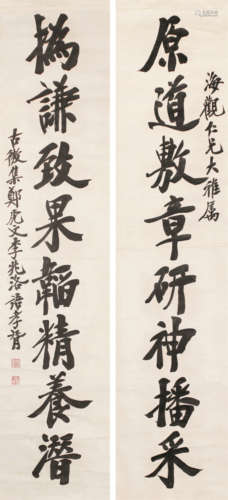 海觀仁兄大雅属
原道敷章研神播采
撝謙致果韜精養潛
古微集鄭虎文李兆洛語孝胥